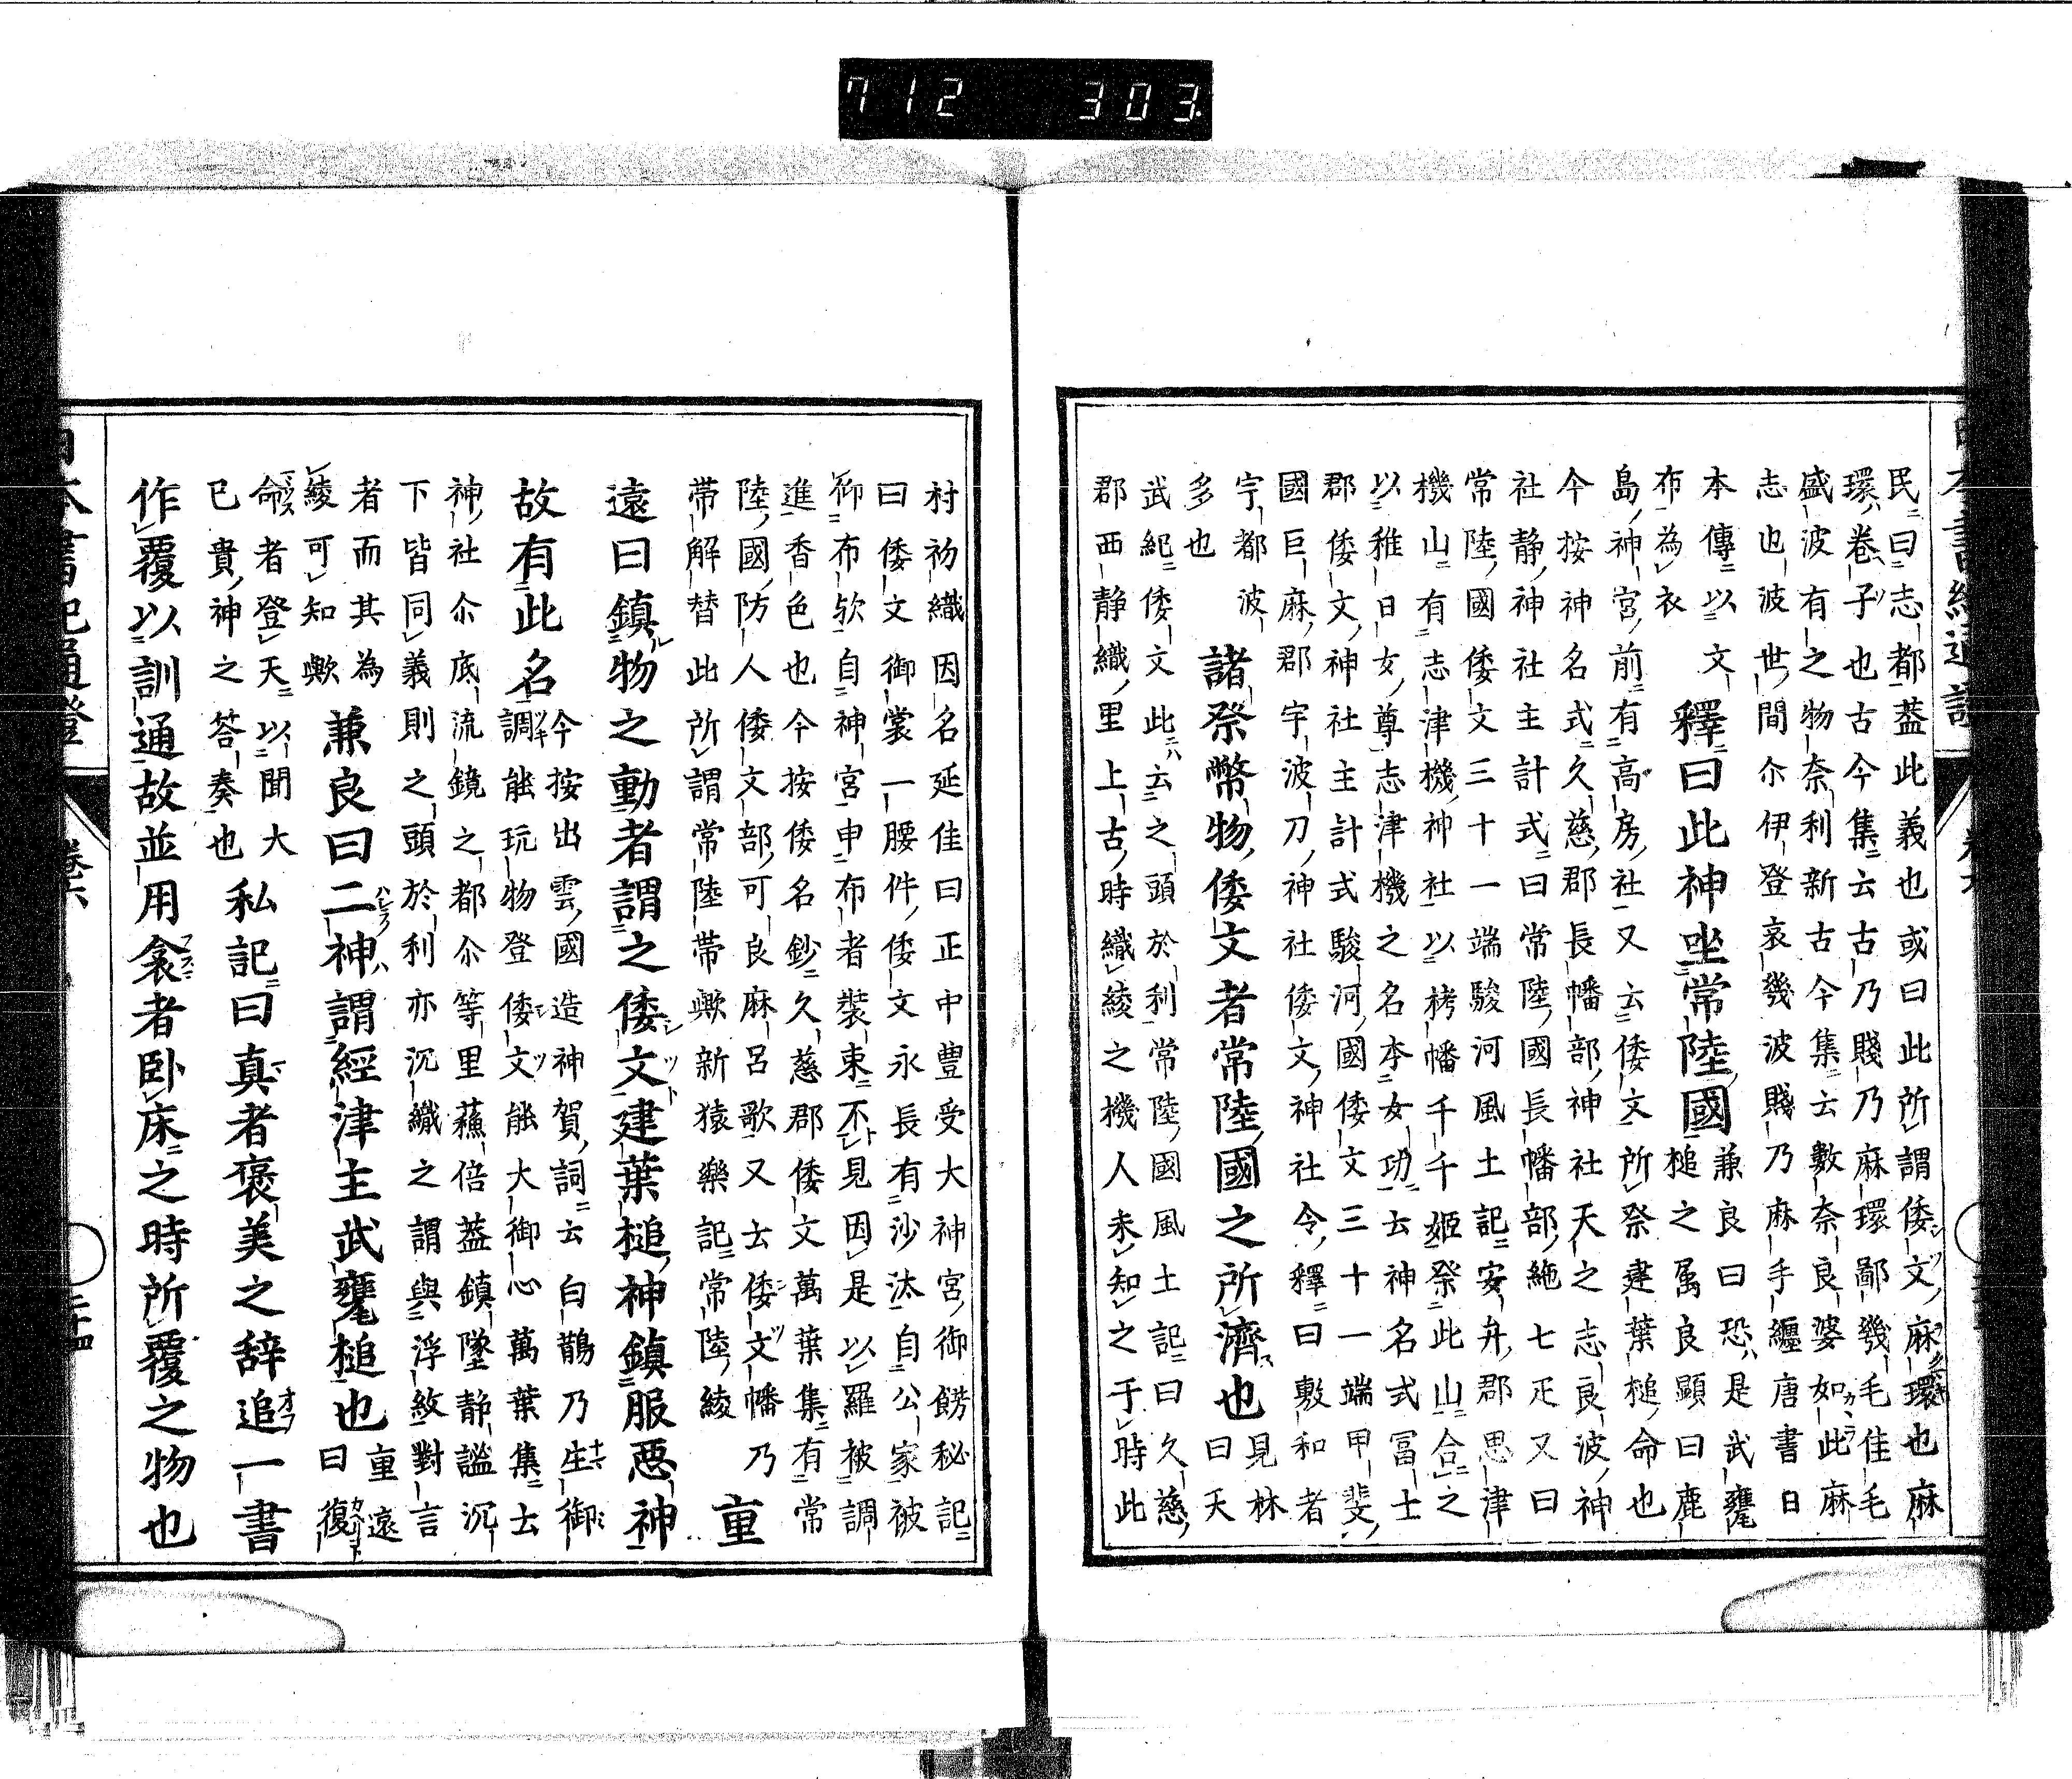 民曰志都葢此義也或曰此所謂倭文麻環也麻
環卷子也古今集云古乃賤乃麻環鄙幾毛佳毛
盛波有之物奈利新古今集云數奈良婆如此麻
志也波世間尒伊登哀幾波賤乃麻手纏唐書日
本傳以文
布為衣
釋曰此神坐常陸國
兼良曰恐是武甕
槌之属良顯曰鹿
島神宮前有高房社又云倭文所祭建葉槌命也
今按神名式久慈郡長幡部神社天之志良波神
社静神社主計式曰常陸國長幡部絁七疋又曰
常陸國倭文三十一端駿河風土記安弁郡思津
機山有志津機神社以栲幡千千姫祭此山合之
以稚日女尊志津機之名本女功云神名式冨士
郡倭文神社主計式駿河國倭文三十一端甲斐
國巨麻郡宇波刀神社倭文神社令釋曰敷和者
宇都波
多也
諸祭幣物倭文者常陸國之所濟也
見林
曰天
武紀倭文此云之頭於利常陸國風土記曰久慈
郡西静織里上古時織綾之機人未知之于時此
村初織因名延佳曰正中豊受大神宮御餝秘記
曰倭文御裳一腰件倭文永長有沙汰自公家被
仰布欤自神宮申布者裝束不見因是以羅被調
進香色也今按倭名鈔久慈郡倭文萬葉集有常
陸國防人倭文部可良麻呂歌又云倭文幡乃
帯解替此所謂常陸帯歟新猿樂記常陸綾
重
遠曰鎮物之動者謂之倭文建葉槌神鎮服惡神
故有此名
今按出雲國造神賀詞云白鵲乃生御
調能玩物登倭文能大御心萬葉集士
神社尒底流鏡之都尒等里蘓倍葢鎮墜静謐沉
下皆同義則之頭於利亦沉織之謂與浮紋對言
者而其為
綾可知歟
兼良曰二神謂經津主武甕槌也
重遠
曰復
命者登天以聞大
已貴神之答奏也
私記曰真者褒美之辞追一書
作覆以訓通故並用衾者卧床之時所覆之物也
日本書紀通證
卷六
二十四
712 303